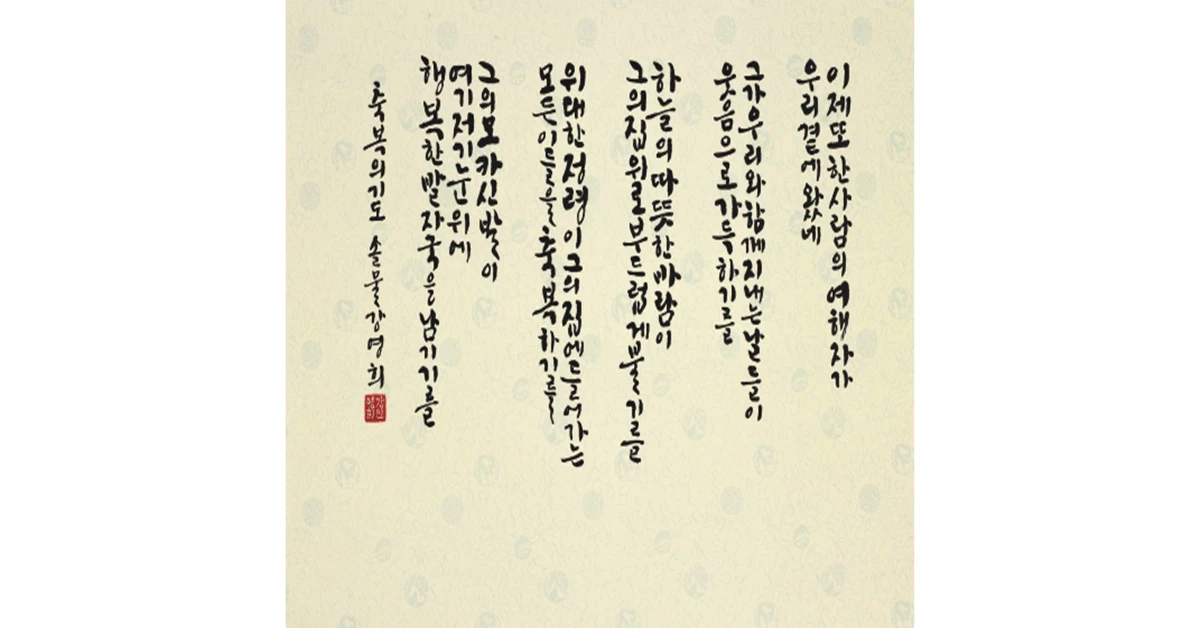 이제 또 한 사람의 여행자가
우리 곁에 왔네
그가 우리와 함께 지내는 날들이
웃음으로 가득하기를
하늘의 따뜻한 바람이
그의 집 위로 부드럽게 불기를
위대한 정령이 그의 집에 들어가는
모든 이들을 축복하기를
그의 모카신 발이
여기저기 눈 위에
행복한 발자국을 남기기를
축복의 기도 솔물 강영희